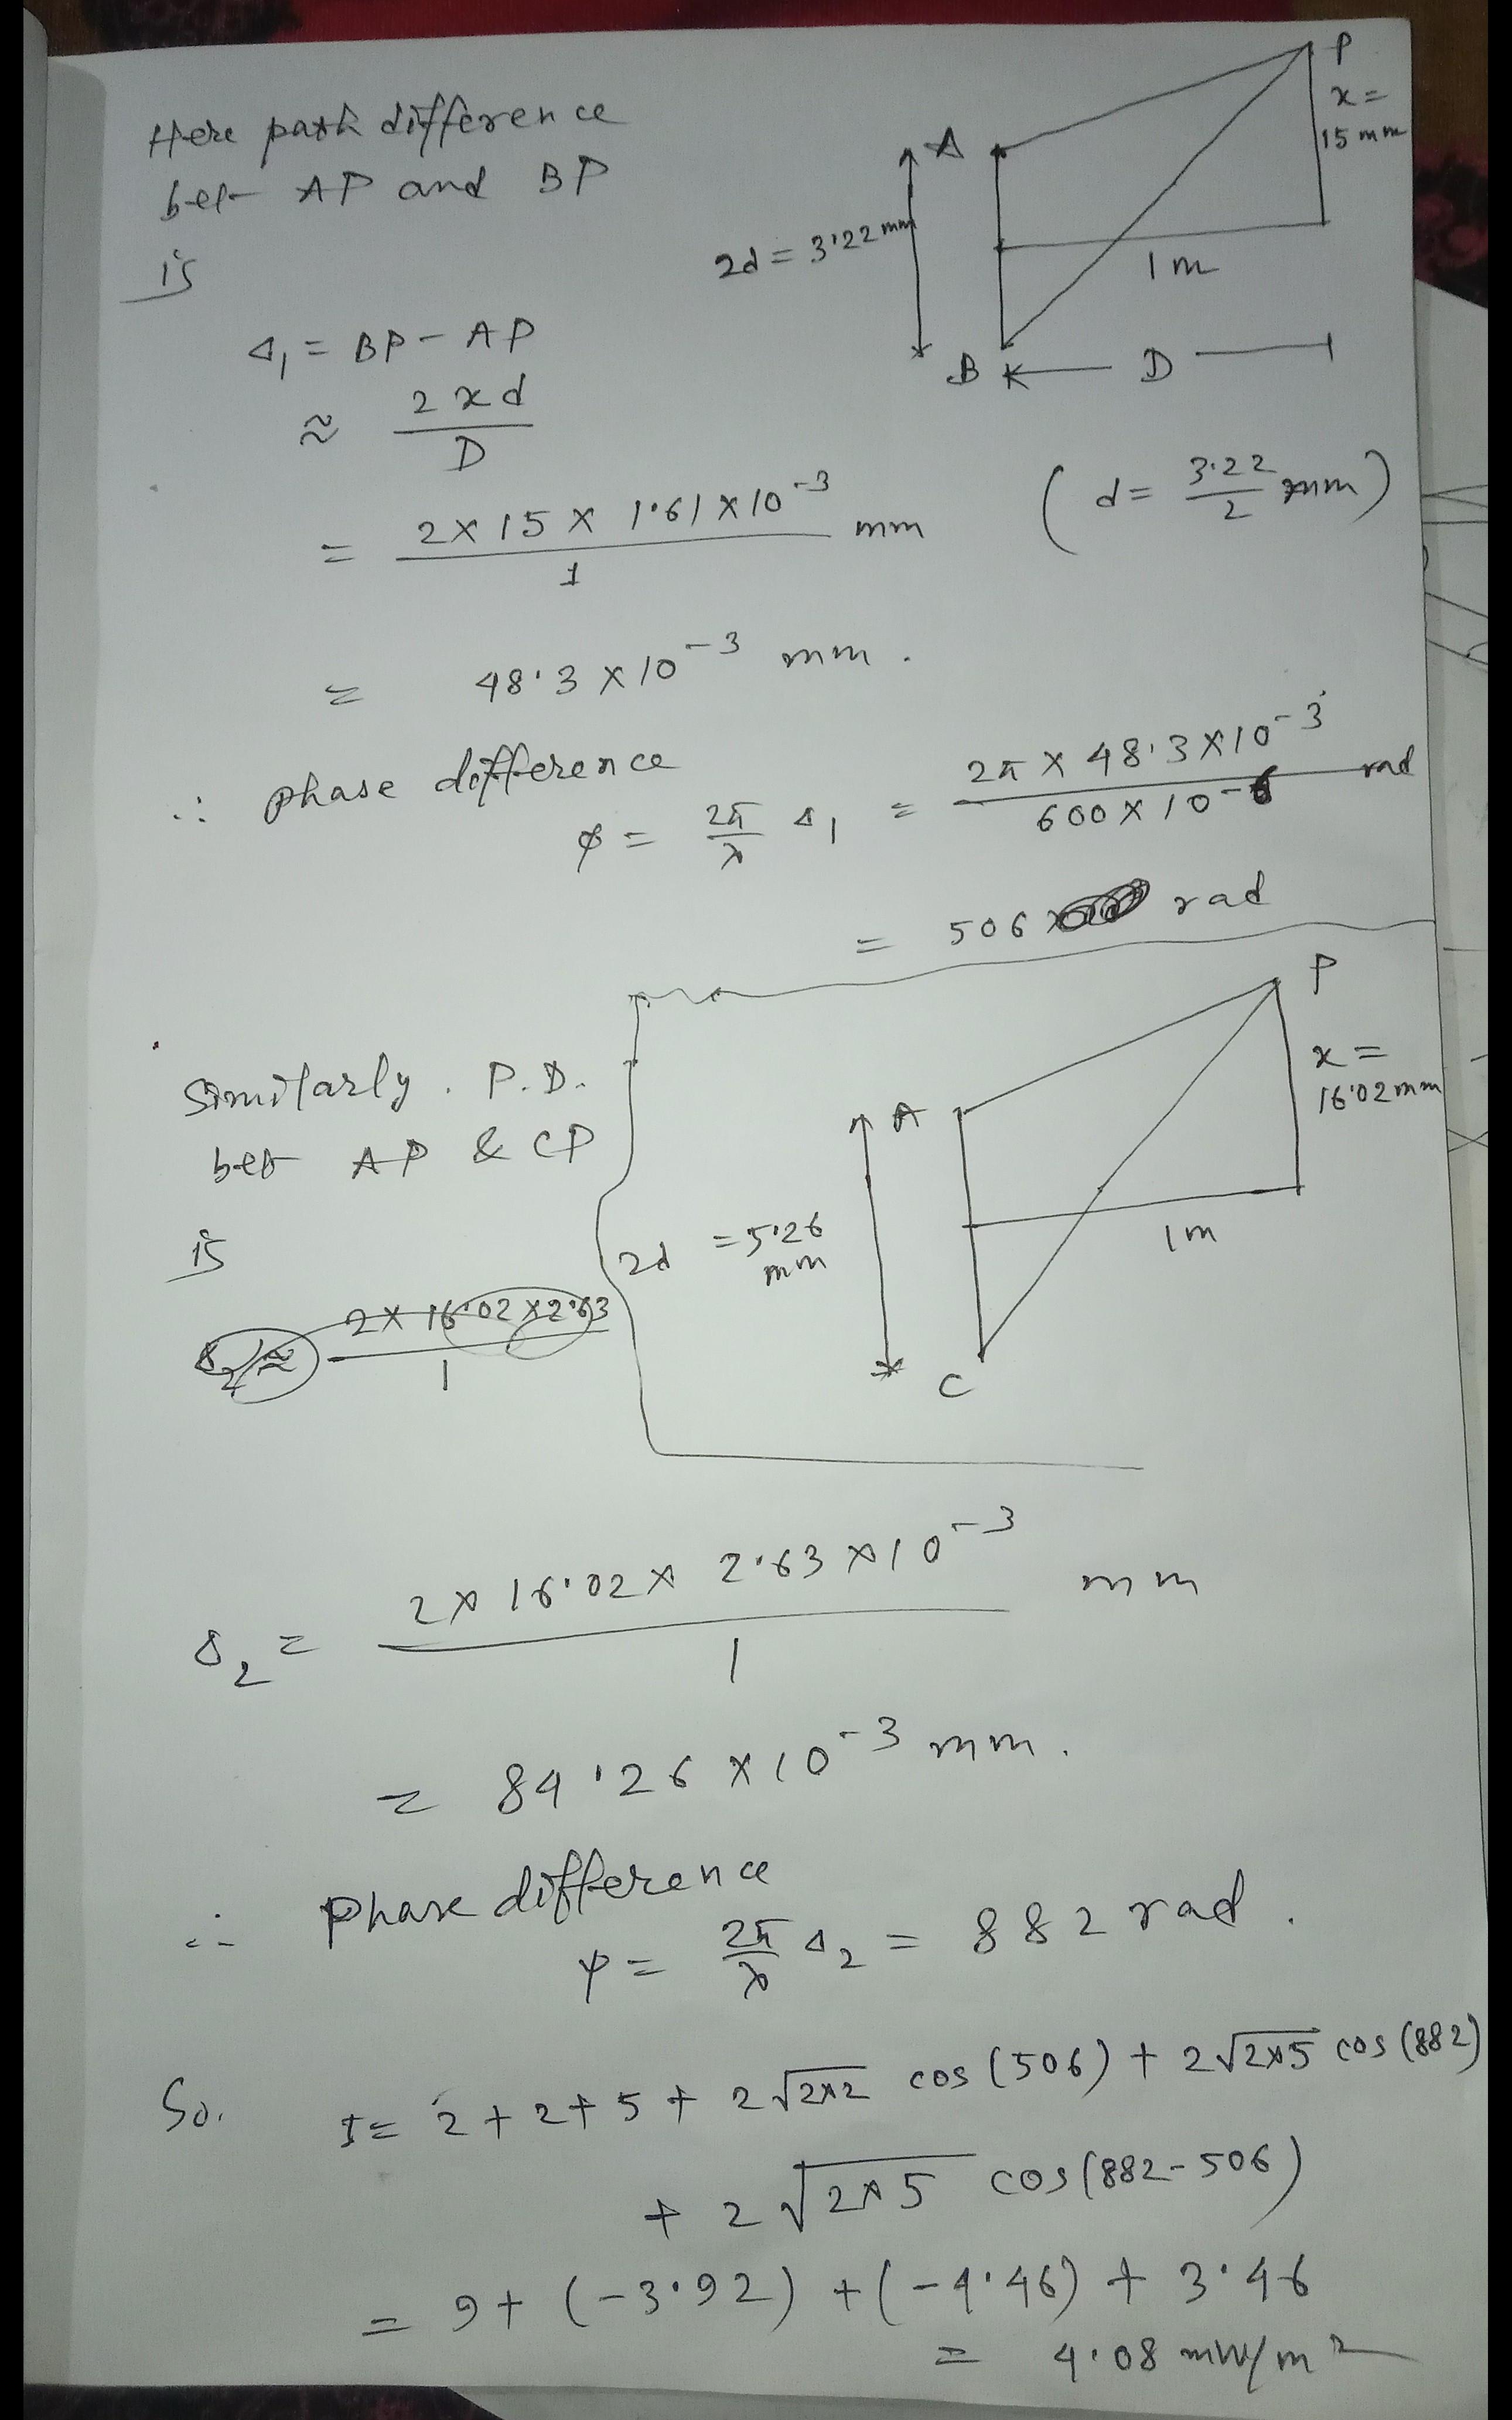 Here path difference
bet- AP and BP
is
P
x =
15 mm
A
2d = 3·22 mm
1 m
B ← D
Δ₁ = BP - AP
≈ 2xd / D
= 2 × 15 × 1·61 × 10⁻³ / 1 mm (d = 3·22 / 2 mm)
= 48·3 × 10⁻³ mm.
∴ phase difference
φ = 2π/λ Δ₁ = 2π × 48·3 × 10⁻³ / 600 × 10⁻⁶ rad
= 506 rad
Similarly. P.D.
bet AP & CP
is
Δ₂ ≈ 2 × 16·02 × 2·63 / 1
P
x =
16·02 mm
A
2d = 5·26
mm
1 m
C
Δ₂ = 2 × 16·02 × 2·63 × 10⁻³ / 1 mm
= 84·26 × 10⁻³ mm.
∴ Phase difference
ψ = 2π/λ Δ₂ = 882 rad.
So. I = 2 + 2 + 5 + 2√2×2 cos (506) + 2√2×5 cos (882)
+ 2√2×5 cos (882-506)
= 9 + (-3·92) + (-4·46) + 3·46
= 4·08 mW/m²